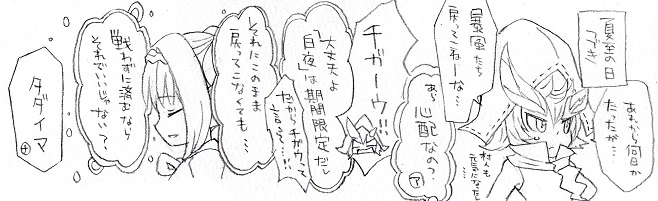 夏至の日
つづき
あれから何日か
たったが…
暴風たち
戻ってこねーな…
村人も
元気になった
…
あら
心配なの?
チガーウ!!
大丈夫よ
「白夜」は期間限定だし
だからチガウって
言って…!!
それにこのまま
戻ってこなくても…
戦わずに済むなら
それでいいじゃない?
タダイマ